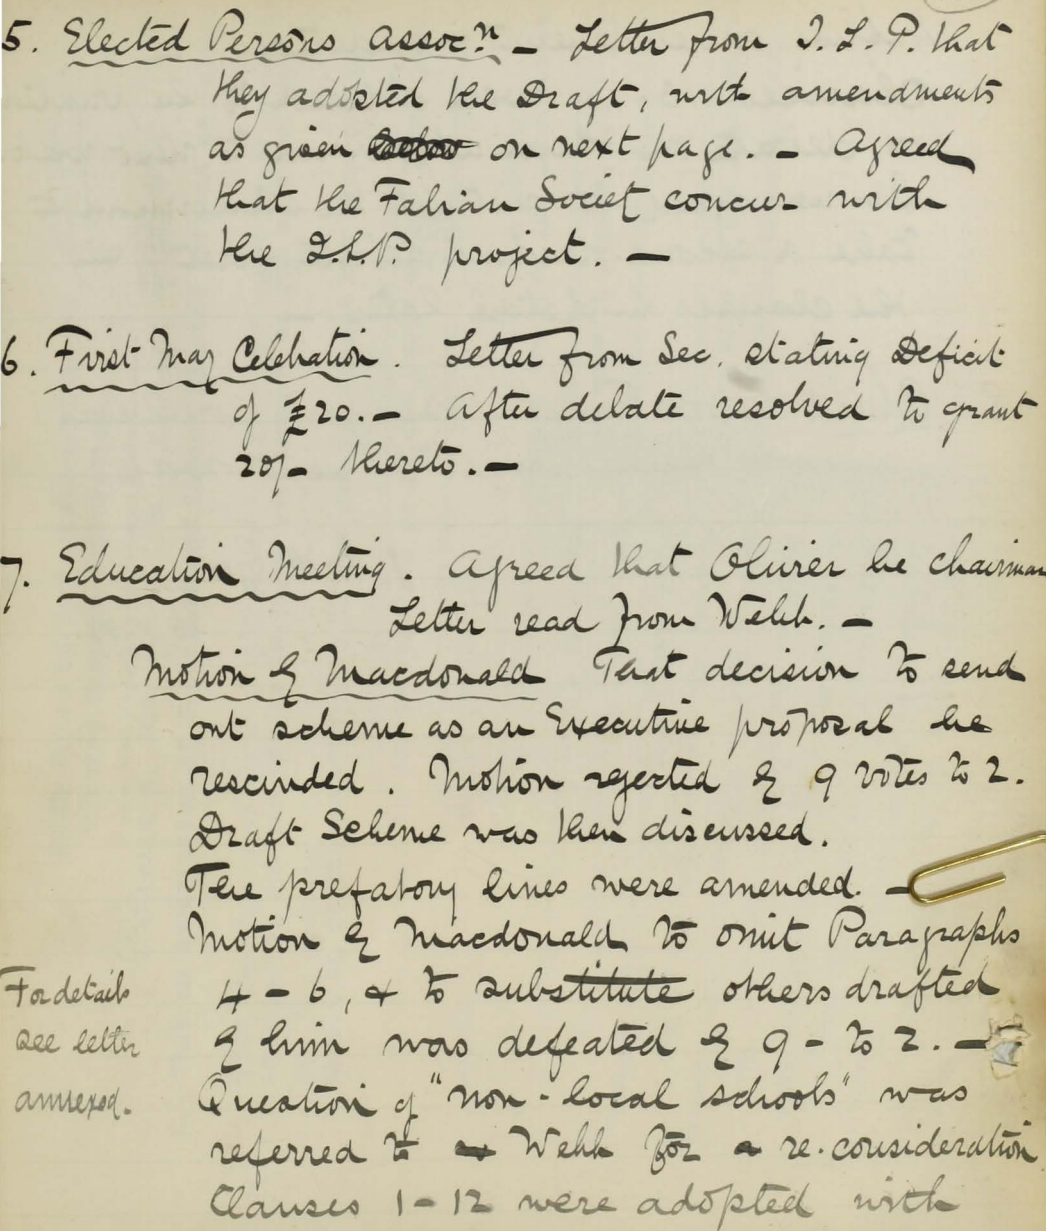 5. Elected Persons Assocn. – Letter from I.L.P. that
they adopted the Draft, with amendments
as given below on next page. – Agreed
that the Fabian Society concur with
the I.L.P. project. –
6. First May Celebration. Letter from Sec. stating Deficit
of £20. – After debate resolved to grant
20/- thereto. –
7. Education Meeting. Agreed that Olivier be chairman
Letter read from Webb. –
Motion by Macdonald That decision to send
out scheme as an Executive proposal be
rescinded. Motion rejected by 9 votes to 2.
Draft Scheme was then discussed.
The prefatory lines were amended. –
Motion by Macdonald to omit Paragraphs
4 – 6, & to substitute others drafted
by him was defeated by 9 – to 2. –
For details
see letter
annexed.
Question of "non-local schools" was
referred to Webb for re-consideration
Clauses 1–12 were adopted with